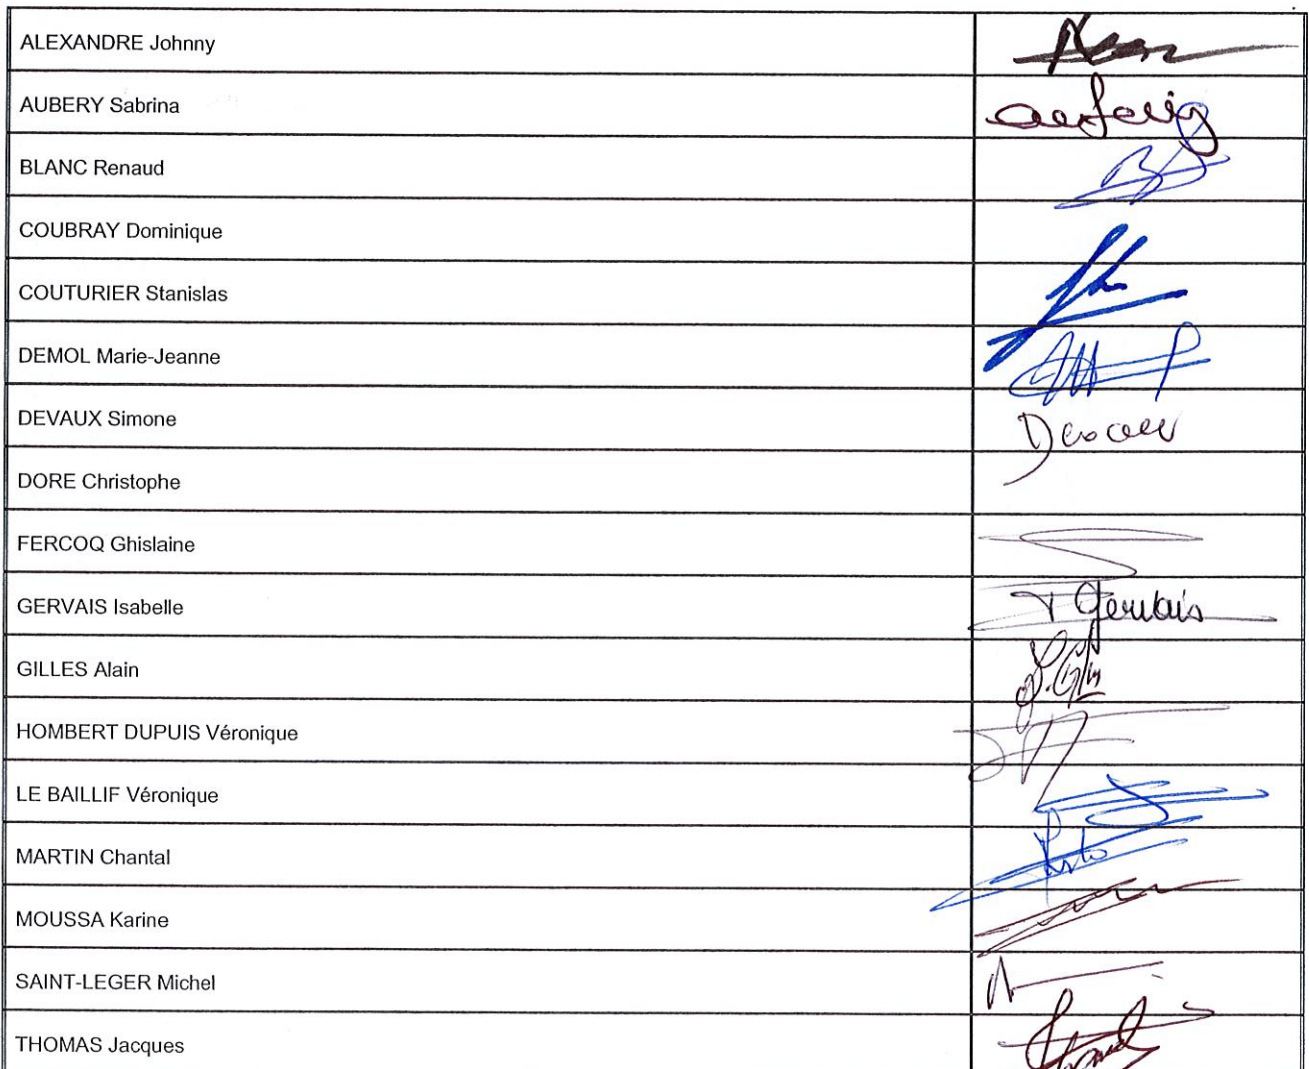 ALEXANDRE Johnny
AUBERY Sabrina
BLANC Renaud
COUBRAY Dominique
COUTURIER Stanislas
DEMOL Marie-Jeanne
DEVAUX Simone
DORE Christophe
FERCOQ Ghislaine
GERVAIS Isabelle
Gervais
GILLES Alain
HOMBERT DUPUIS Véronique
LE BAILLIF Véronique
MARTIN Chantal
MOUSSA Karine
SAINT-LEGER Michel
THOMAS Jacques